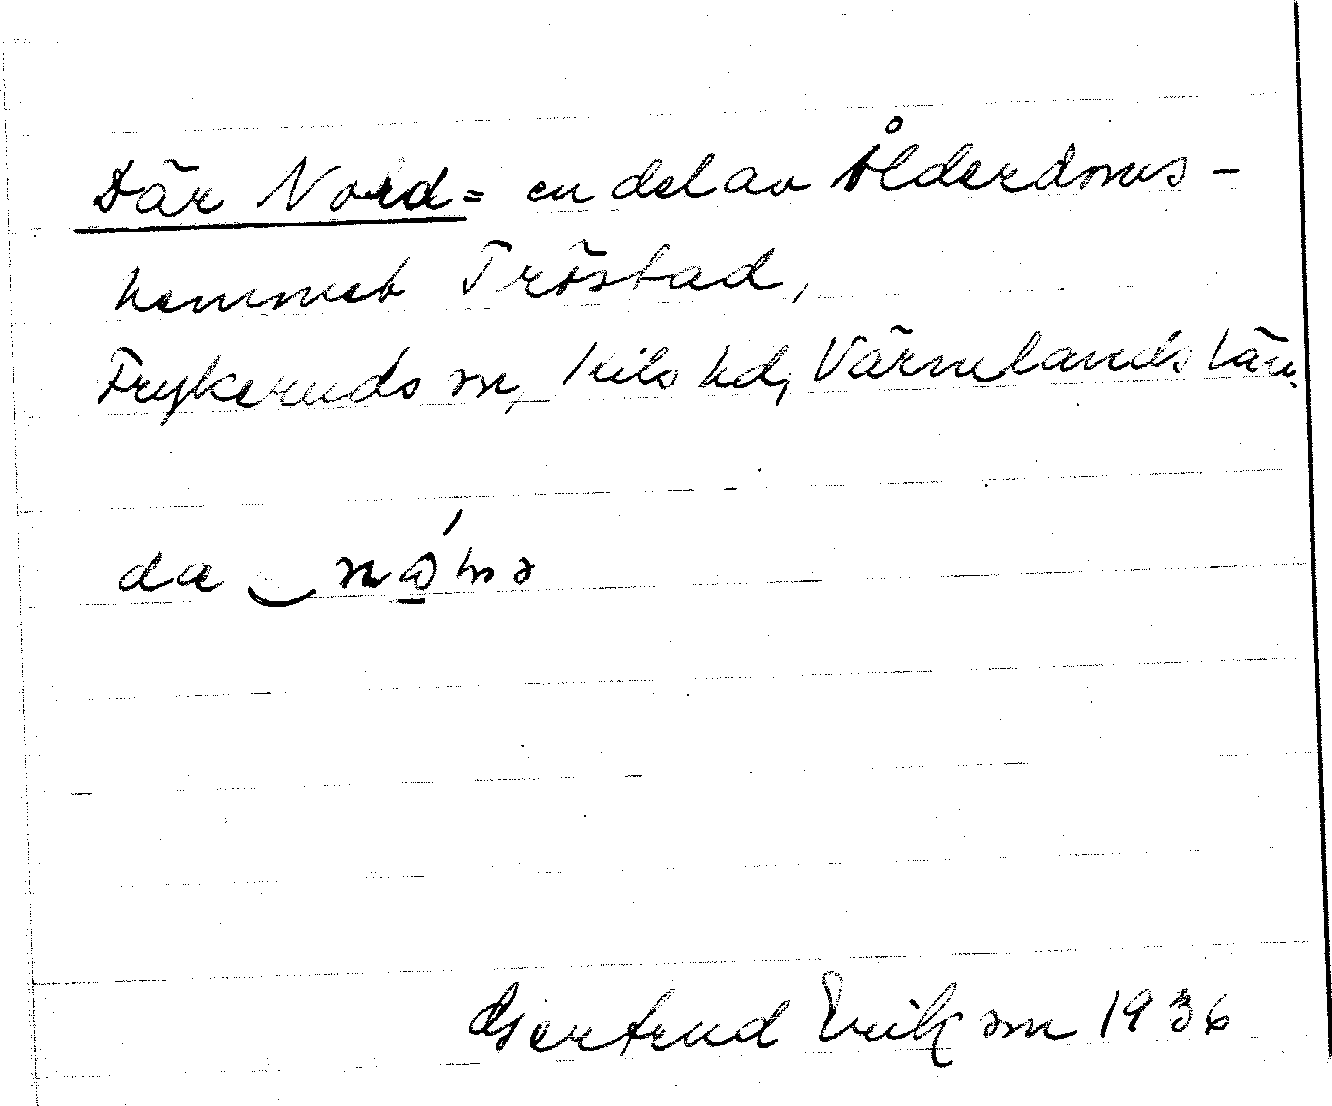 Där Nord = en del av Ålderdoms-
hemmet Tröstad,
Frykeruds sn, Kils hd, Värmlands län.
da
Gertrud Erikson 1936